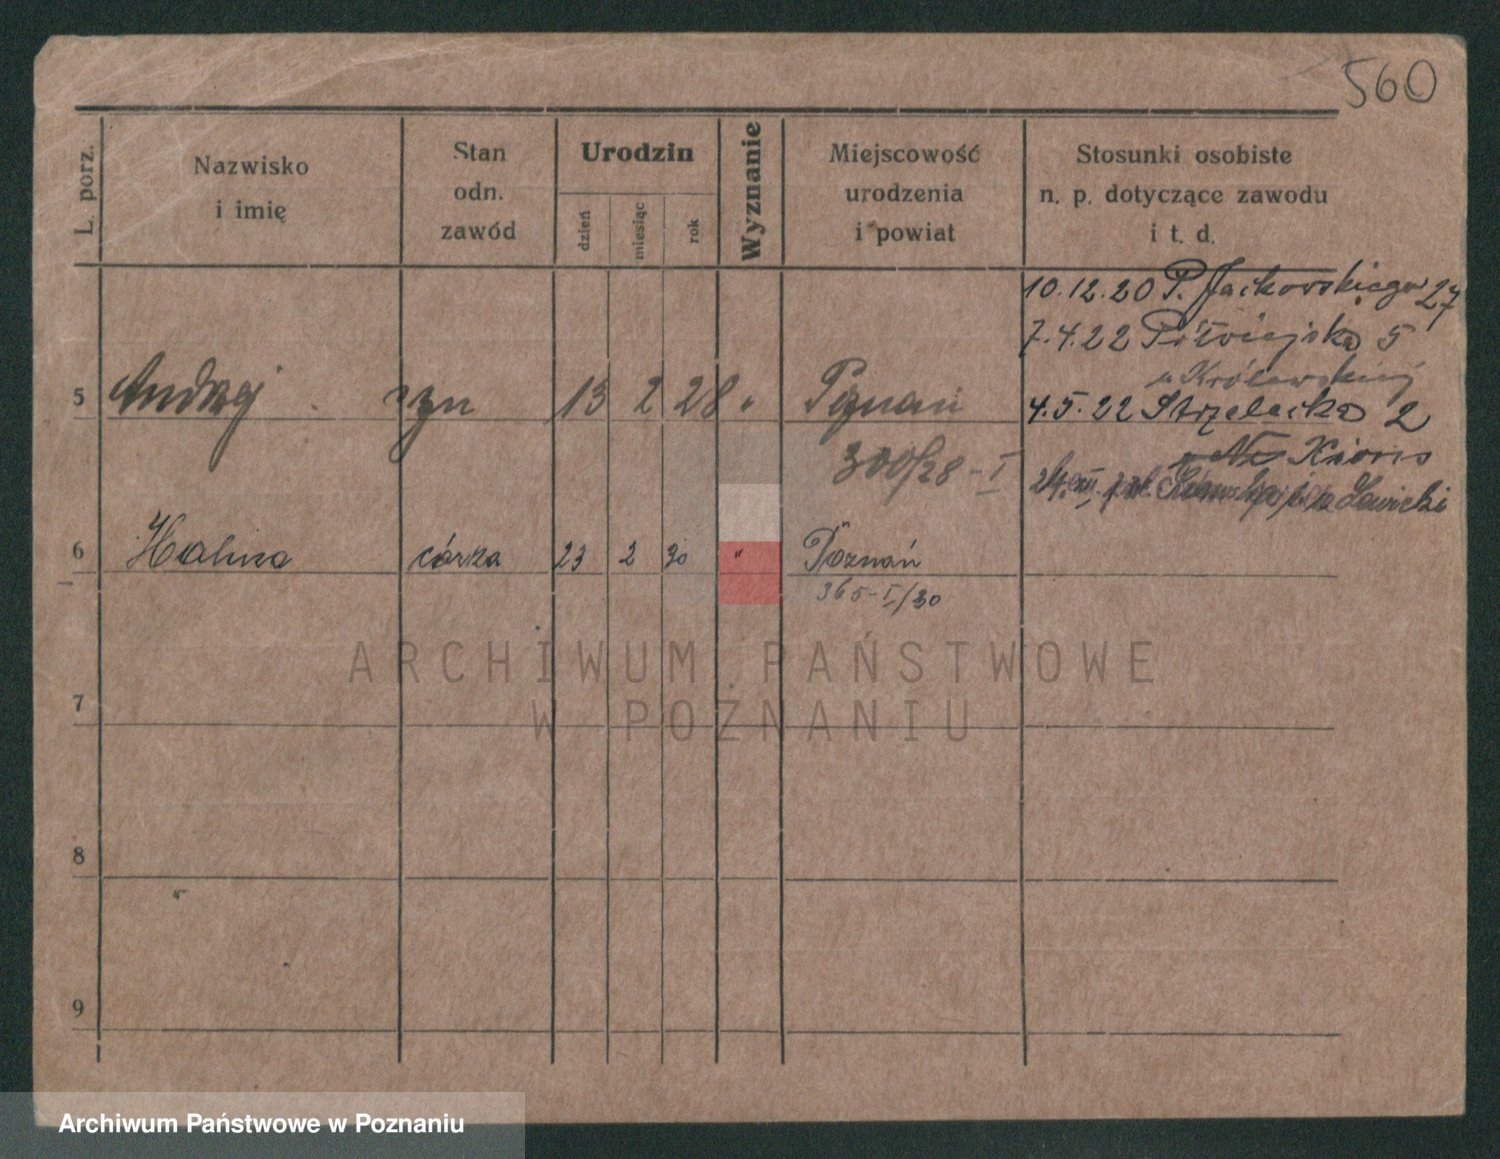 560
L. porz.
Nazwisko
i imię
Stan
odn.
zawód
Urodzin
dzień
miesiąc
rok
Wyznanie
Miejscowość
urodzenia
i powiat
Stosunki osobiste
n. p. dotyczące zawodu
i t. d.
10.12.20 P. Jackowskiego 27
7.4.22 Półwiejska 5
u Królewskiej
5 Andrzej syn 13 2 28 " Poznań
4.5.22 Strzelecka 2
300/28-I
6 Halina córka 23 2 30 " Poznań
365-I/30
ARCHIWUM PAŃSTWOWE
W POZNANIU
7
8
9
Archiwum Państwowe w Poznaniu